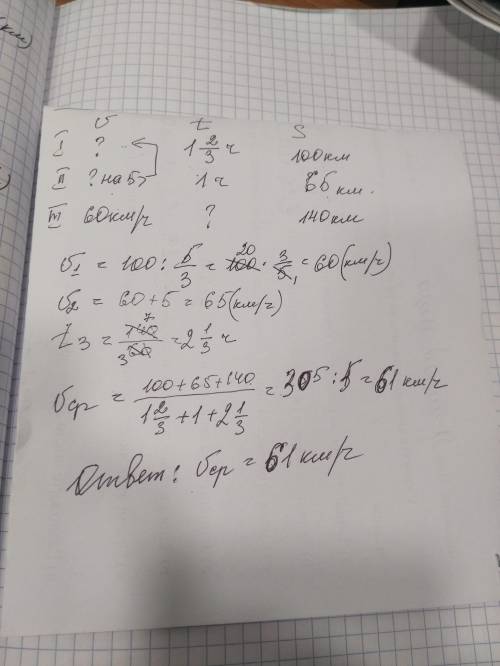 км)
v t S
I ? 1 2/3 ч 100км
II ? на 5> 1ч 65 км.
III 60км/ч ? 140км
v₁ = 100 : 5/3 = 100 · 3/5 = 60(км/ч)
20 1
v₂ = 60 + 5 = 65(км/ч)
t₃ = 140/60 = 2 1/3 ч
7 3
vср = (100+65+140)/(1 2/3 + 1 + 2 1/3) = 305 : 5 = 61 км/ч
Ответ: vср = 61 км/ч